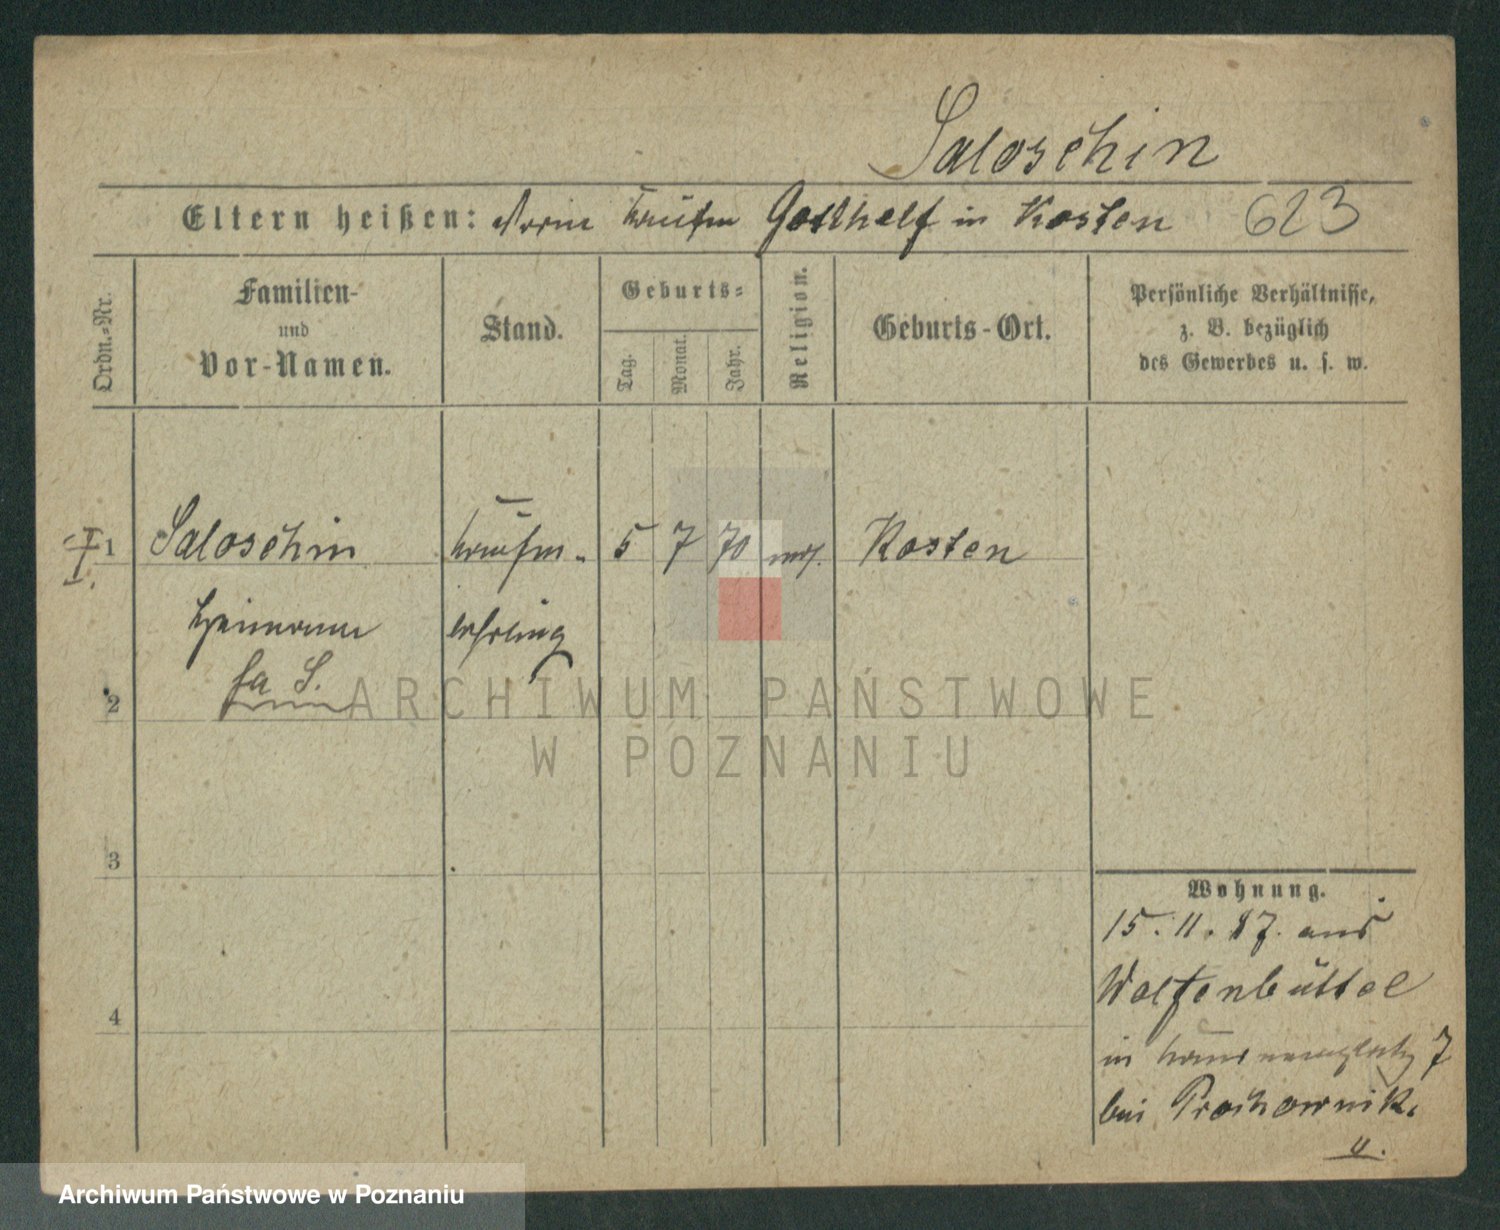 Saloschin
Eltern heißen: Kaufm Gotthelf in Kosten 623
Ordn.-Nr.
Familien-
und
Vor-Namen.
Stand.
Geburts-
Tag.
Monat.
Jahr.
Religion.
Geburts-Ort.
Persönliche Verhältnisse,
z. B. bezüglich
des Gewerbes u. s. w.
1 Saloschin Kaufm. 5 7 70 mos. Kosten
Heimann lehrling
fa S.
2
3
4
Wohnung.
15. 11. 87. aus
Wolfenbüttel
in 7
bei Prochownik.
ARCHIWUM PAŃSTWOWE
W POZNANIU
Archiwum Państwowe w Poznaniu